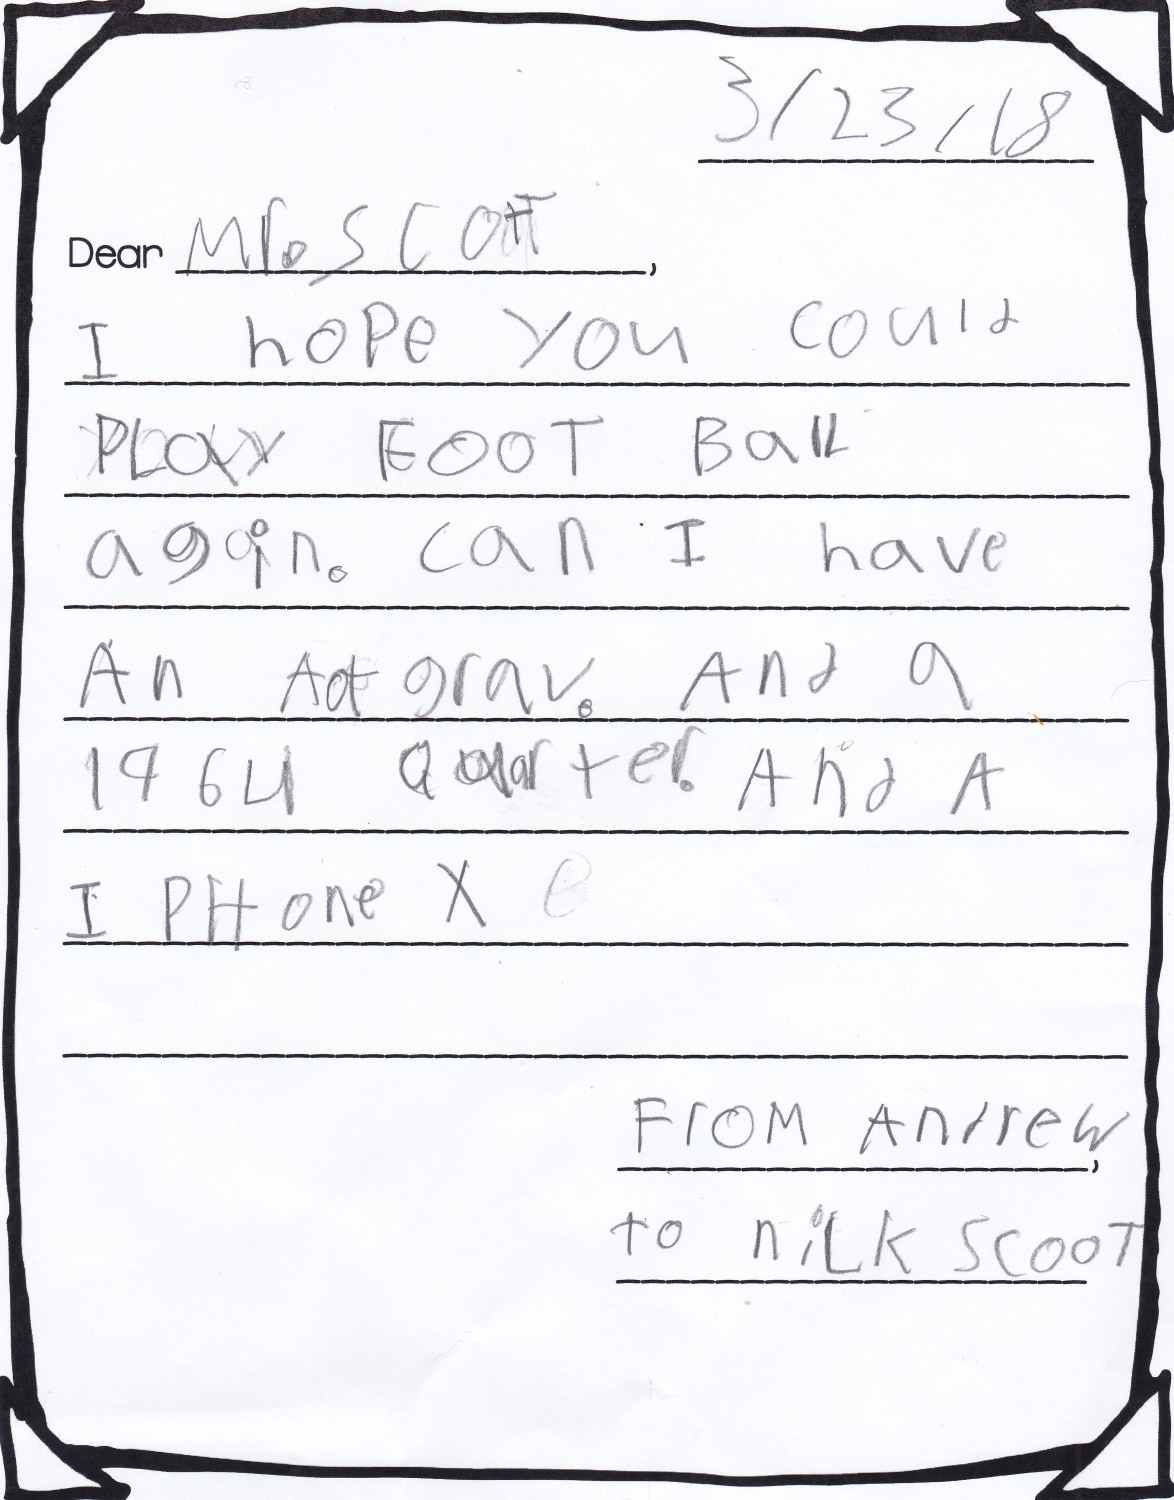 3/23/18
Dear Mr. Scott,
I hope you could
PLay FOOT Ball
again. can I have
An Aotgrav. And a
1964 Quarter. And A
I PHone X
FroM Andrew,
to niLk ScooT